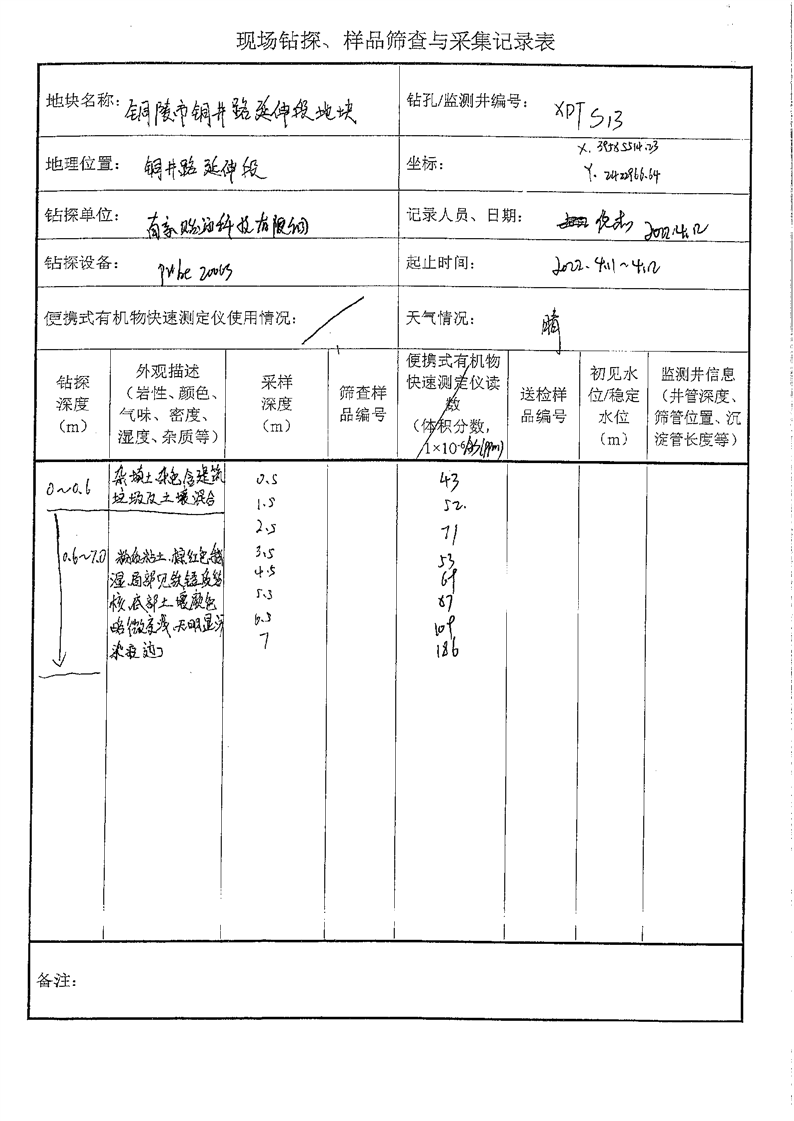 现场钻探、样品筛查与采集记录表
地块名称：铜陵市铜井路延伸段地块
钻孔/监测井编号：XPT S13
地理位置：铜井路延伸段
坐标：
X. 39585514.23
Y. 2422966.64
钻探单位：科技有限公司
记录人员、日期：2022.4.12
钻探设备：
起止时间：2022.4.11～4.12
便携式有机物快速测定仪使用情况：
天气情况：晴
钻探
深度
（m）
外观描述
（岩性、颜色、
气味、密度、
湿度、杂质等）
采样
深度
（m）
筛查样
品编号
便携式有机物
快速测定仪读
数
（体积分数，
1×10-6 (ppm)
送检样
品编号
初见水
位/稳定
水位
（m）
监测井信息
（井管深度、
筛管位置、沉
淀管长度等）
0～0.6
杂填土.杂色含建筑
垃圾及土壤混合
0.5 43
1.5 52.
2.5 71
0.6～7.0
粉质粘土.棕红色稍
湿.局部见铁锰质结
核.底部土壤颜色
略微变浅.无明显污
染痕迹
3.5 53
4.5 69
5.5 87
6.5 109
7 186
备注：